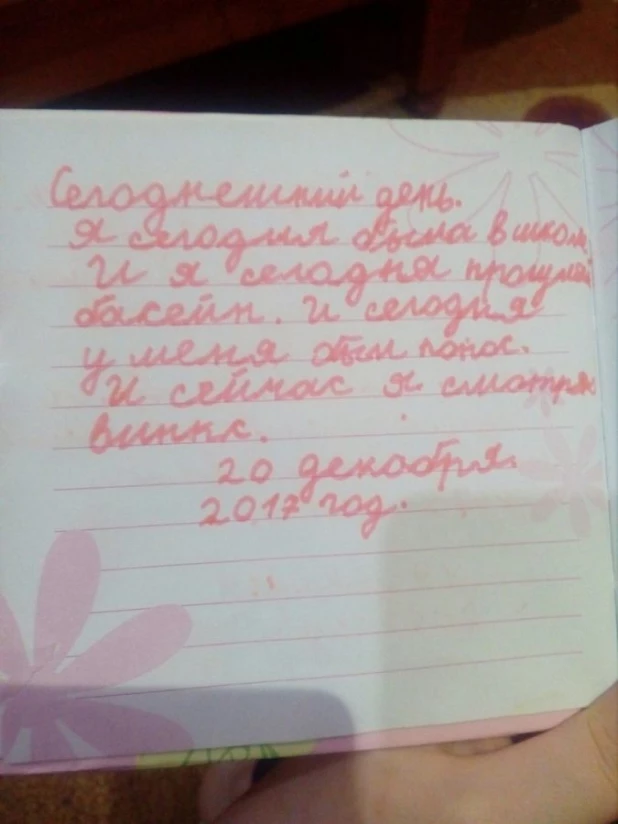 Сегоднешний день.
Я сегодня была в школе
И я сегодня прогуляла
басейн. И сегодня
у меня был понос.
И сейчас я смотрю
винкс.
20 декабря
2017 год.